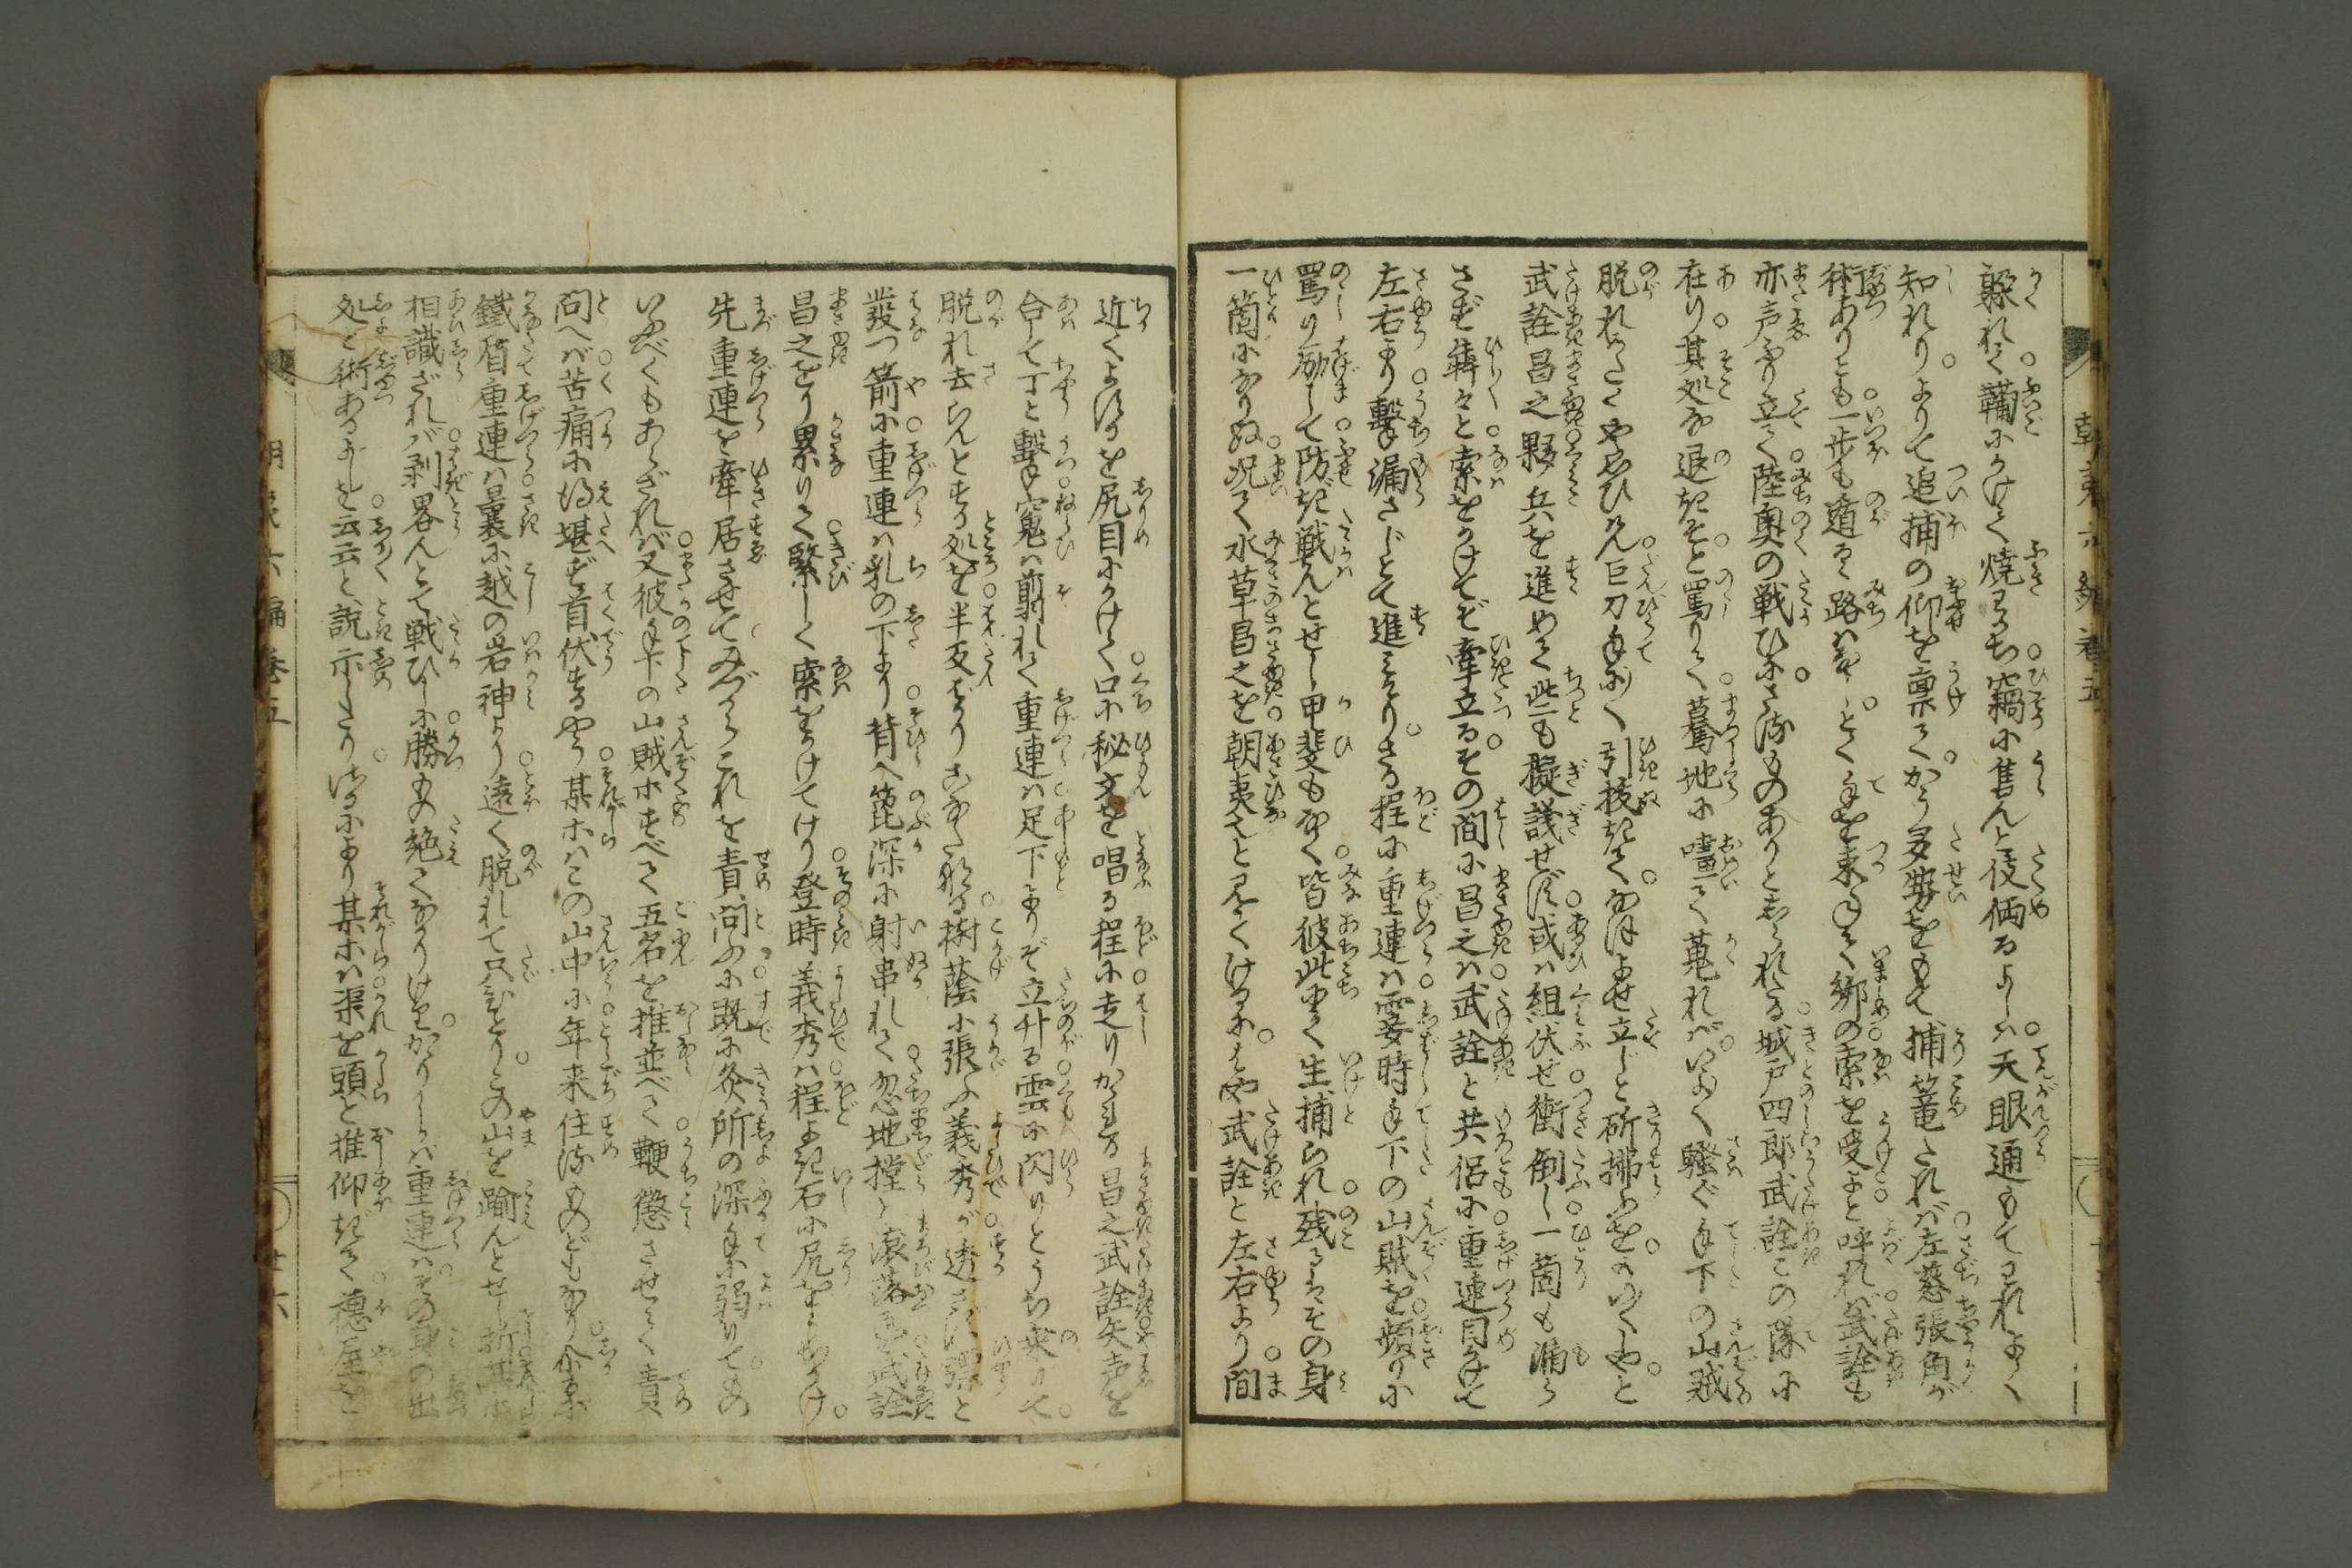 朝夷六編巻五
躱れて鞴にかけて焼るゝち竊に售んと伎倆るよしハ天眼通もてわれよく
知れりよりて追捕の仰を稟てかう多勢をもて捕篭たれバ左慈張角が
術ありとも一歩も遁るゝ路ハなしとく手を束ねて綁の索を受よと呼れバ武詮も
亦声ふり立て陸奥の戦ひにさるものありとしられたる城戸四郎武詮この隊に
在り其処な退きそと罵りて驀地に噇て蒐れバいよく騒ぐ手下の山賊
脱れかたくや思ひけん巨刀手に〳〵引抜きてなほよせ立じと斫拂ふをものしやと
武詮昌之夥兵を進めて些も擬議せず或ハ組伏せ衝倒し一箇も漏らさ
さず犇々と索をかけてぞ牽立るその間に昌之ハ武詮と共侶に重連目かけて
左右より撃漏さじとて進みけりさる程に重連ハ霎時手下の山賊を頻りに
罵り励して防ぎ戦んとせし甲斐もなく皆彼此にて生捕られ残るハその身
一箇になりぬ况て水草昌之を朝夷也と見てけるにはや武詮と左右より間
近くよするを尻目にかけて口に秘文を唱る程に走りかゝる昌之武詮矢声を
合して丁と撃窺ハ翦れて重連ハ足下よりぞ立升る雲に閃りとうち乗りて
脱れ去らんとする処を半反ばかりこなたなる樹蔭に張ふ義秀が透さず彈と
發つ箭に重連ハ乳の下より背へ箆深に射串れて忽地撲と滾落るを武詮
昌之をり累りて緊しく索をかけてけり登時義秀ハ程よき石に尻をうちかけ
先重連を牽居させてみづからこれを責問ふに既に灸所の深手に弱りてもの
いふべくもあらざれバ又彼手下の山賊ホすべて五名を推並べて鞭懲させて責
問へバ苦痛に得堪ず首伏するやう某ホハこの山中に年来住るものどもなり介るに
鐵盾重連ハ曩に越の岩神より遠く脱れて只ひとりこの山を踰んとせし折某ホ
相識ざれバ剥畧んとて戦ひしに勝もの絶てなかりけりかゝりしかバ重連ハその身の出
処と術あるよしを云云と説示したりけるにより某ホハ渠を頭と推仰ぎて穩座を
朝夷六編巻五
廿六